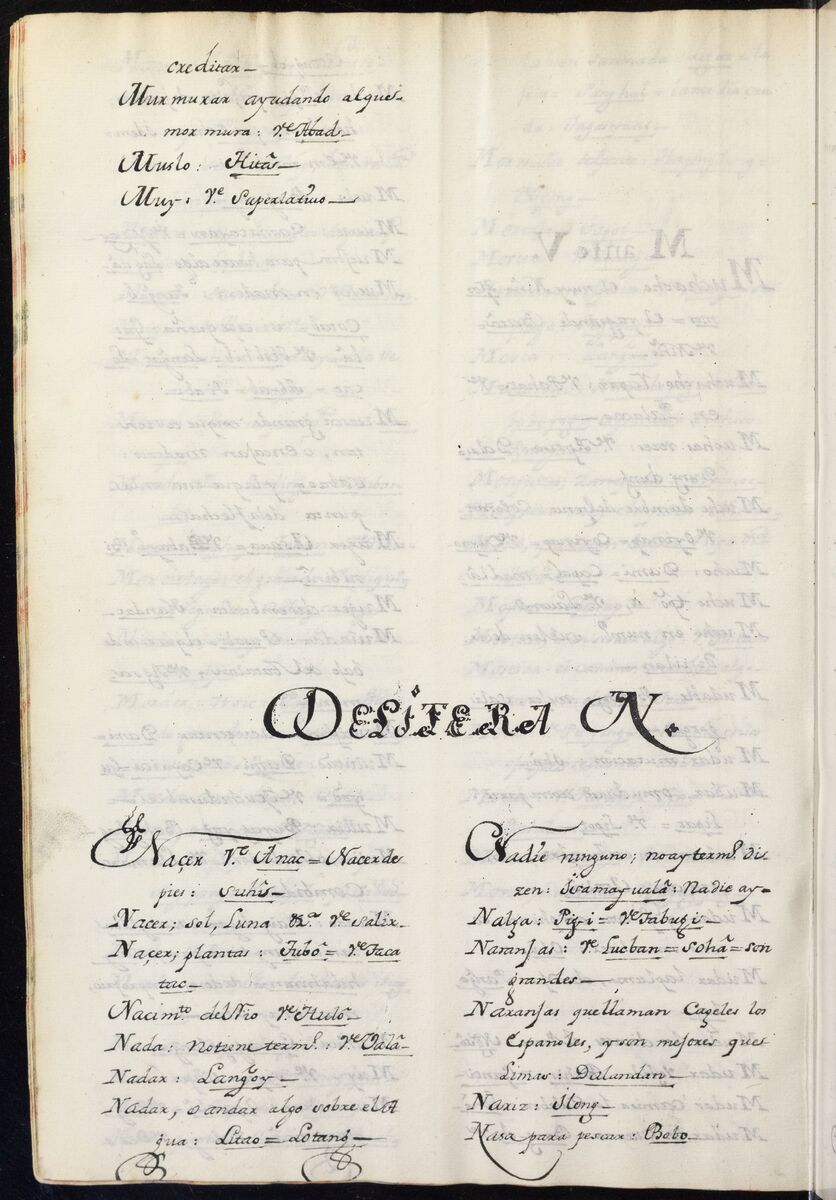 creditar_
Murmurar ayudando alques
mormura: Vᵉ Abad_
Muslo: Hitã_
Muy: Vᵉ Superlativo_
DELÍTERA N.
Naçer Vᵉ Anac = Nacer de
pies: Suhĩ_
Nacer; sol, Luna &ᵃ Vᵉ Salix_
Naçer; plantas: Tubõ = Vᵉ Taca
tac_
Nacimᵗᵒ del Rio Vᵉ Hulõ_
Nada: notiene termᵒ: Vᵉ Valã_
Nadar: Langoy_
Nadar, o andar algo sobre el A
gua: Litao = Lotang_
Nadie ninguno; no ay termᵒ. di
zen: Isa may valã: Nadie ay_
Nalga: Pigi = Vᵉ Tabugi_
Naranjas: Vᵉ Lucban = Sohã = son
grandes_
Naranjas que llaman Cageles los
Españoles, y son mejores ques
Limas: Dalandan_
Nariz: Ilong_
Nasa para pescar: Bobo_